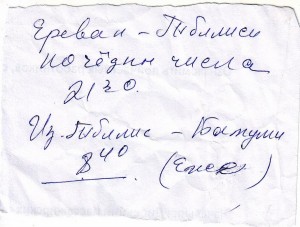 Ереван - Тбилиси
по чёдин числа
21 30.
Из. Тбилис - Батуми
8 40 (Ежед)